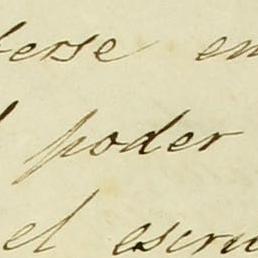 erse en
poder
el escru